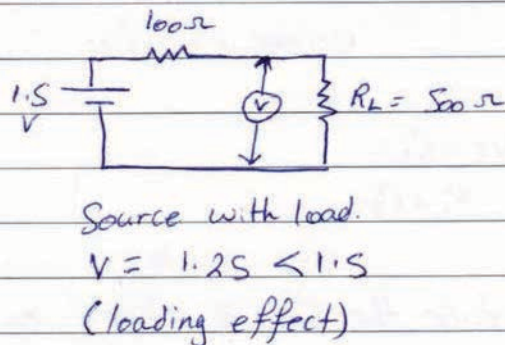 100Ω
1.5
V
V
RL = 500 Ω
Source with load.
V = 1.25 < 1.5
(loading effect)